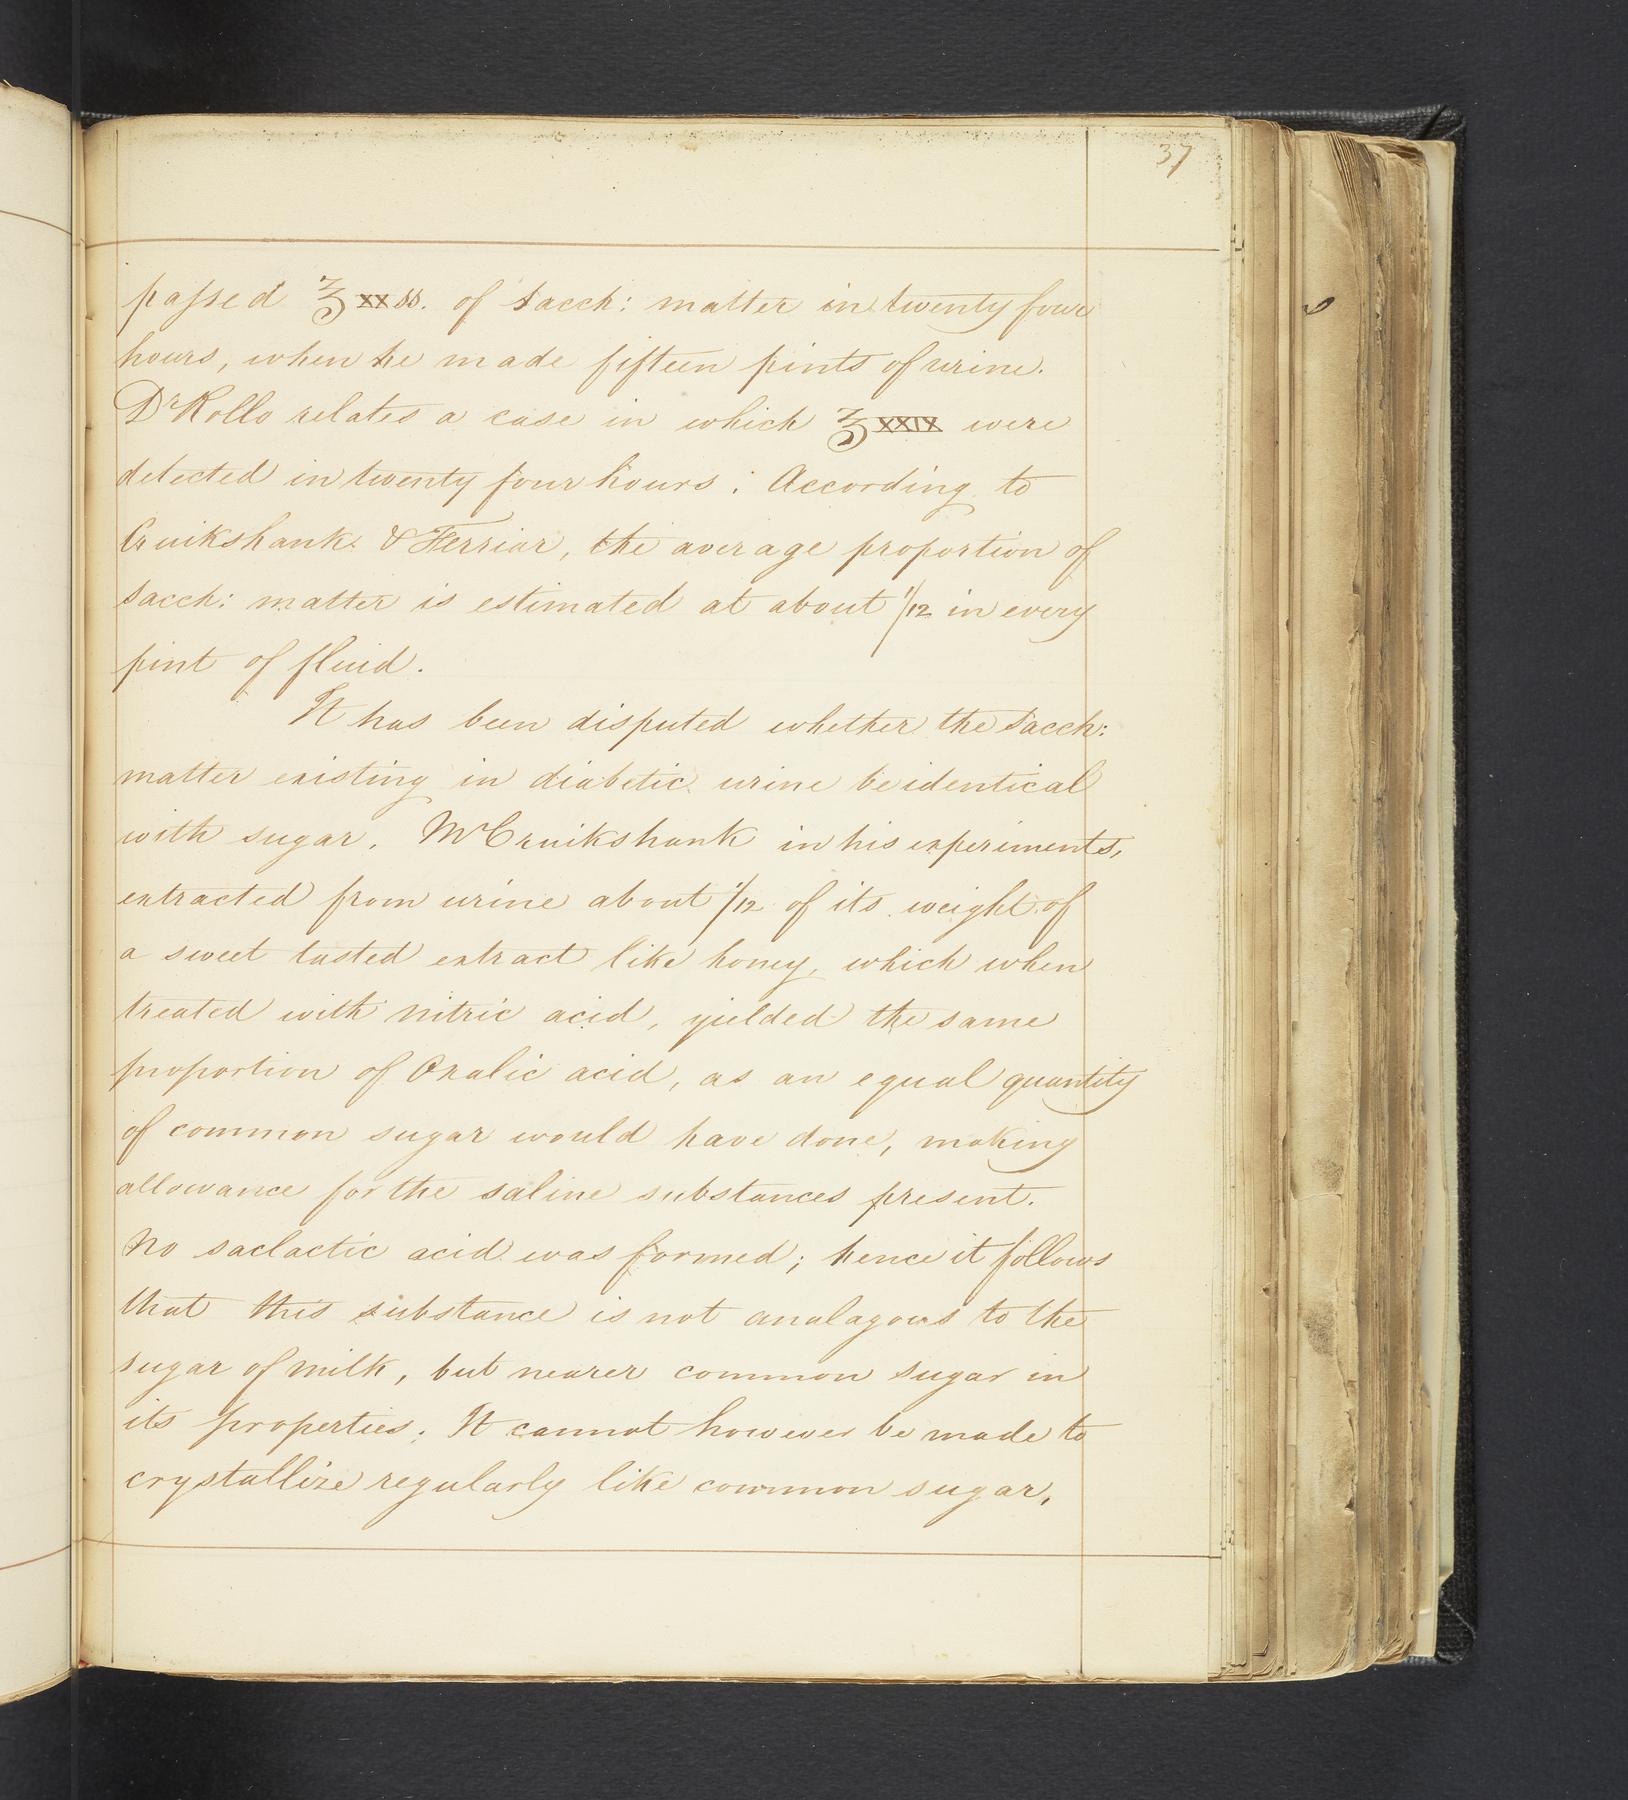 37
passed ℥ xxss. of Sacch: matter in twenty four
hours, when he made fifteen pints of urine.
Dr Rollo relates a case in which ℥ XXIX were
detected in twenty four hours: According to
Cruikshank & Ferriar, the average proportion of
Sacch: matter is estimated at about 1/12 in every
pint of fluid.
It has been disputed whether the Sacch:
matter existing in diabetic urine be identical
with sugar. Mr Cruikshank in his experiments,
extracted from urine about 1/12 of its weight of
a sweet tasted extract like honey, which when
treated with nitric acid, yielded the same
proportion of Oxalic acid, as an equal quantity
of common sugar would have done, making
allowance for the saline substances present.
No saclactic acid was formed; hence it follows
that this substance is not analagous to the
sugar of milk, but nearer common sugar in
its properties. It cannot however be made to
crystallize regularly like common sugar,